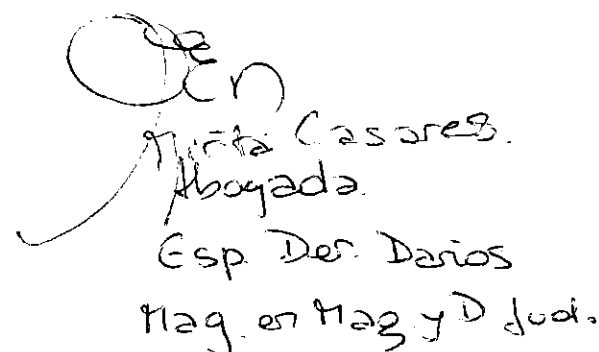 Mirta Casares.
Abogada
Esp. Der. Daños
Mag. en Mag. y D Jud.